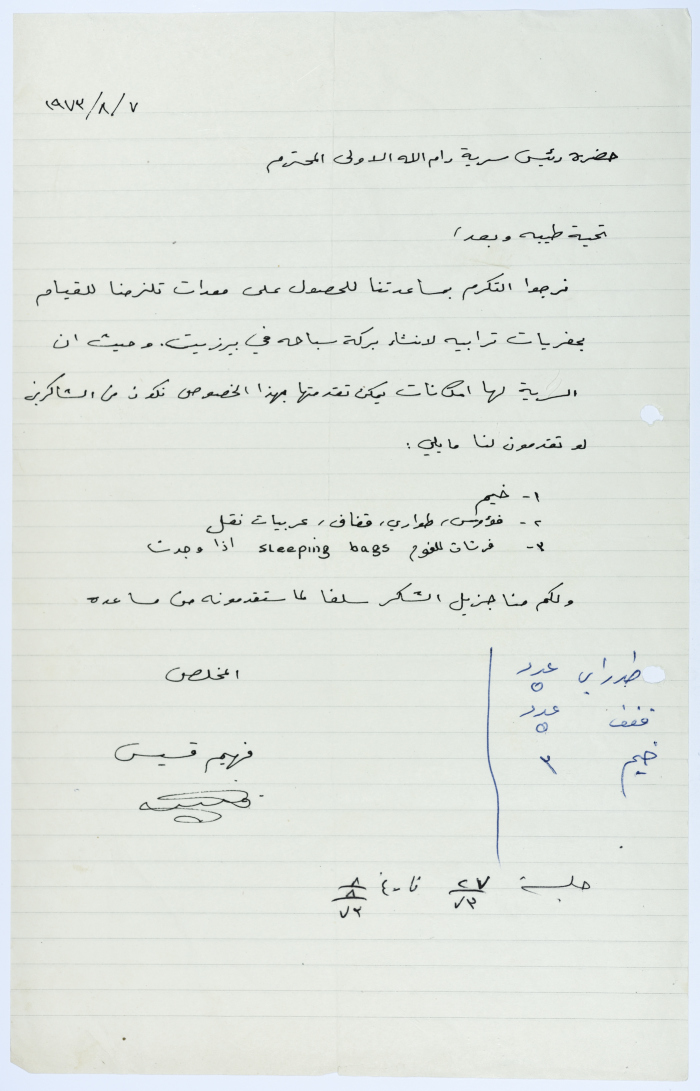 ١٩٧٣/٨/٧
حضرة رئيس سرية رام الله الاولى المحترم
تحية طيبه وبعد،
نرجوا التكرم بمساعدتنا للحصول على معدات تلزمنا للقيام
بحفريات ترابيه لانشاء بركة سباحه في بيرزيت. وحيث ان
السرية لها امكانات يمكن تقدمتها بهذا الخصوص نكون من الشاكرين
لو تقدمون لنا مايلي:
١- خيم
٢- فؤوس، طواري، قفاف، عربيات نقل
٣- فرشات للنوم sleeping bags اذا وجدت
ولكم منا جزيل الشكر سلفا لما ستقدمونه من مساعده
المخلص
فهيم قسيس
طوراي عدد ٥
قفف عدد ٥
خيم ٣
جلسة ٢٧/٧٣ تاريخ ٨/٨/٧٣